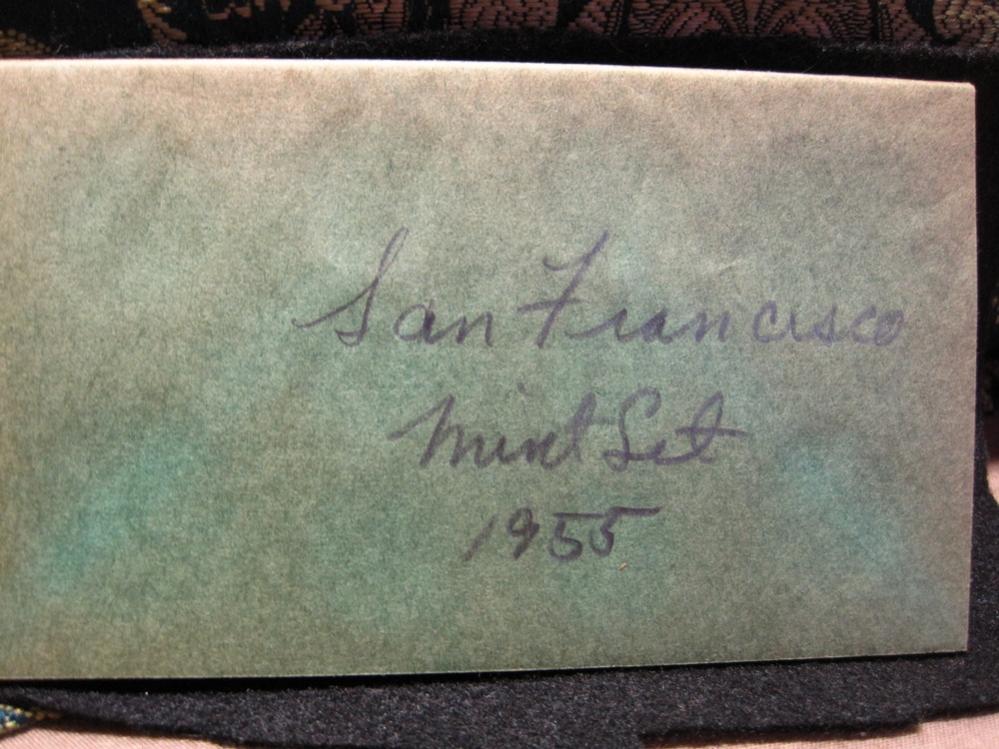 San Francisco
Mint Set
1955